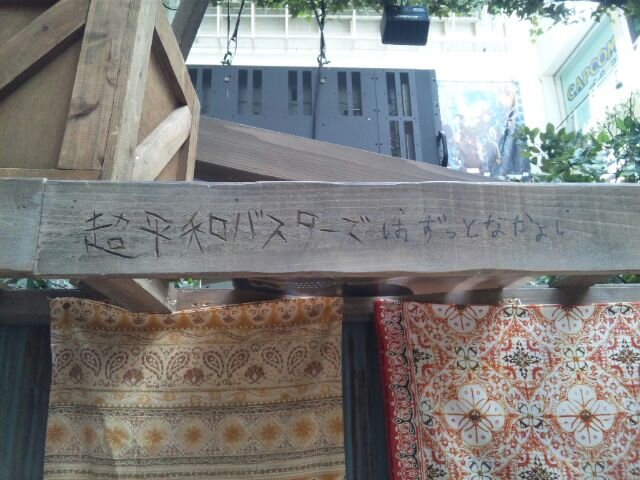 CAPCOM
超平和バスターズはずっとなかよし